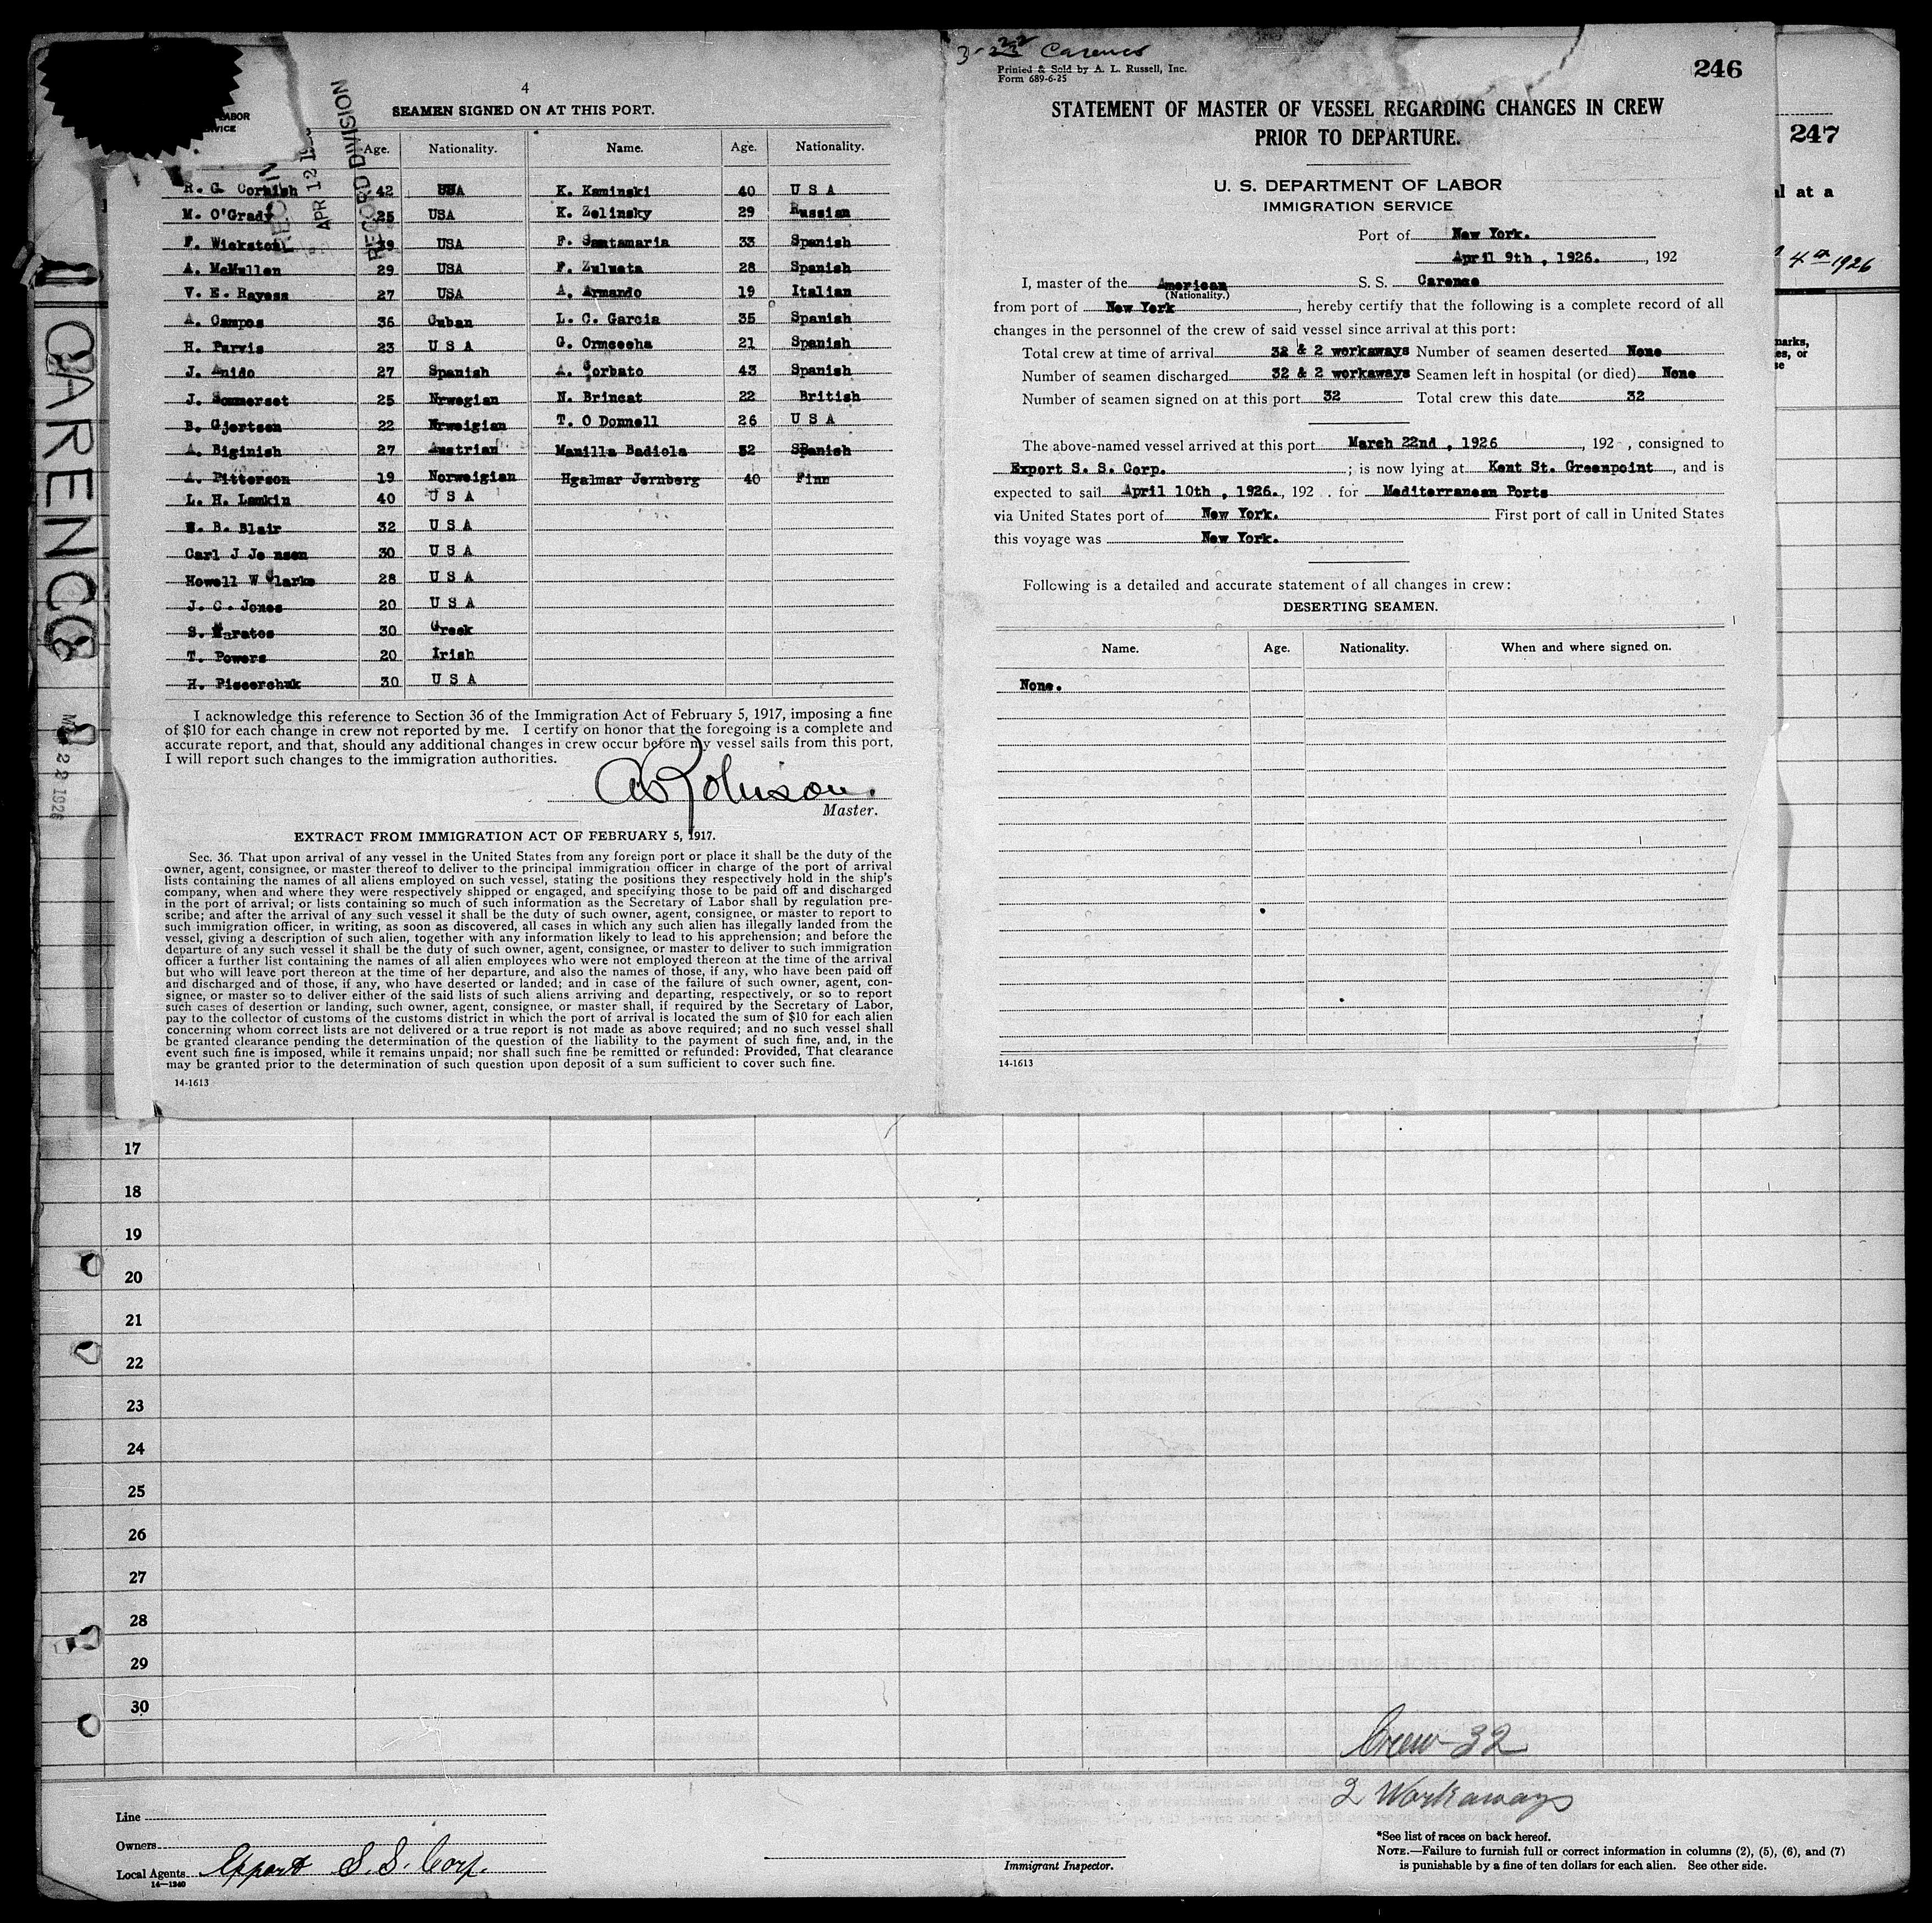 LABOR
VICE
4
SEAMEN SIGNED ON AT THIS PORT.
APR 12
RECORD DIVISION
Age. Nationality. Name. Age. Nationality.
R. G. Cornish 42 USA K. Kaminski 40 U S A
M. O'Grady 25 USA K. Zelinsky 29 Russian
F. Wickston 39 USA F. Santamaria 33 Spanish
A. McMullen 29 USA F. Zulueta 28 Spanish
V. E. Rayess 27 USA A. Armando 19 Italian
A. Campos 36 Cuban L. C. Garcia 35 Spanish
H. Purvis 23 U S A G. Ormeeha 21 Spanish
J. Anido 27 Spanish A. Corbato 43 Spanish
J. Sommerset 25 Nrwegian N. Brincat 22 British
B. Gjertsen 22 Nrweigian T. O Donnell 26 U S A
A. Biginish 27 Austrian Manilla Badiola 32 SPanish
A. Pitterson 19 Norweigian Hgalmar Jernberg 40 Finn
L. H. Lamkin 40 U S A
W. B. Blair 32 U S A
Carl J Je nsen 30 U S A
Howell W Clarke 28 U S A
J. C. Jones 20 U S A
S. Maratos 30 Greek
T. Powers 20 Irish
H. Piscerchuk 30 U S A
I acknowledge this reference to Section 36 of the Immigration Act of February 5, 1917, imposing a fine
of $10 for each change in crew not reported by me. I certify on honor that the foregoing is a complete and
accurate report, and that, should any additional changes in crew occur before my vessel sails from this port,
I will report such changes to the immigration authorities.
A Robinson.
Master.
EXTRACT FROM IMMIGRATION ACT OF FEBRUARY 5, 1917.
Sec. 36. That upon arrival of any vessel in the United States from any foreign port or place it shall be the duty of the
owner, agent, consignee, or master thereof to deliver to the principal immigration officer in charge of the port of arrival
lists containing the names of all aliens employed on such vessel, stating the positions they respectively hold in the ship's
company, when and where they were respectively shipped or engaged, and specifying those to be paid off and discharged
in the port of arrival; or lists containing so much of such information as the Secretary of Labor shall by regulation pre-
scribe; and after the arrival of any such vessel it shall be the duty of such owner, agent, consignee, or master to report to
such immigration officer, in writing, as soon as discovered, all cases in which any such alien has illegally landed from the
vessel, giving a description of such alien, together with any information likely to lead to his apprehension; and before the
departure of any such vessel it shall be the duty of such owner, agent, consignee, or master to deliver to such immigration
officer a further list containing the names of all alien employees who were not employed thereon at the time of the arrival
but who will leave port thereon at the time of her departure, and also the names of those, if any, who have been paid off
and discharged and of those, if any, who have deserted or landed; and in case of the failure of such owner, agent, con-
signee, or master so to deliver either of the said lists of such aliens arriving and departing, respectively, or so to report
such cases of desertion or landing, such owner, agent, consignee, or master shall, if required by the Secretary of Labor,
pay to the collector of customs of the customs district in which the port of arrival is located the sum of $10 for each alien
concerning whom correct lists are not delivered or a true report is not made as above required; and no such vessel shall
be granted clearance pending the determination of the question of the liability to the payment of such fine, and, in the
event such fine is imposed, while it remains unpaid; nor shall such fine be remitted or refunded: Provided, That clearance
may be granted prior to the determination of such question upon deposit of a sum sufficient to cover such fine.
14-1613
CARENCO
22 1926
3-22 Carenco
Printed & Sold by A. L. Russell, Inc.
Form 689-6-25
246
STATEMENT OF MASTER OF VESSEL REGARDING CHANGES IN CREW
PRIOR TO DEPARTURE.
U. S. DEPARTMENT OF LABOR
IMMIGRATION SERVICE
Port of New York.
April 9th, 1926. , 192
I, master of the American S. S. Carenco
(Nationality.)
from port of New York, hereby certify that the following is a complete record of all
changes in the personnel of the crew of said vessel since arrival at this port:
Total crew at time of arrival 32 & 2 workaways Number of seamen deserted None
Number of seamen discharged 32 & 2 workaways Seamen left in hospital (or died) None
Number of seamen signed on at this port 32 Total crew this date 32
The above-named vessel arrived at this port March 22nd, 1926, 192 , consigned to
Export S. S. Corp. ; is now lying at Kent St. Greenpoint, and is
expected to sail April 10th, 1926., 192 . for Mediterranean Ports
via United States port of New York. First port of call in United States
this voyage was New York.
Following is a detailed and accurate statement of all changes in crew:
DESERTING SEAMEN.
Name. Age. Nationality. When and where signed on.
None.
14-1613
247
al at a
4th 1926
marks,
es, or
se
17
18
19
20
21
22
23
24
25
26
27
28
29
30
Crew 32
2 Workaways
Line
Owners
Local Agents Export S.S. Corp.
14-1240
Immigrant Inspector.
*See list of races on back hereof.
NOTE.—Failure to furnish full or correct information in columns (2), (5), (6), and (7)
is punishable by a fine of ten dollars for each alien. See other side.